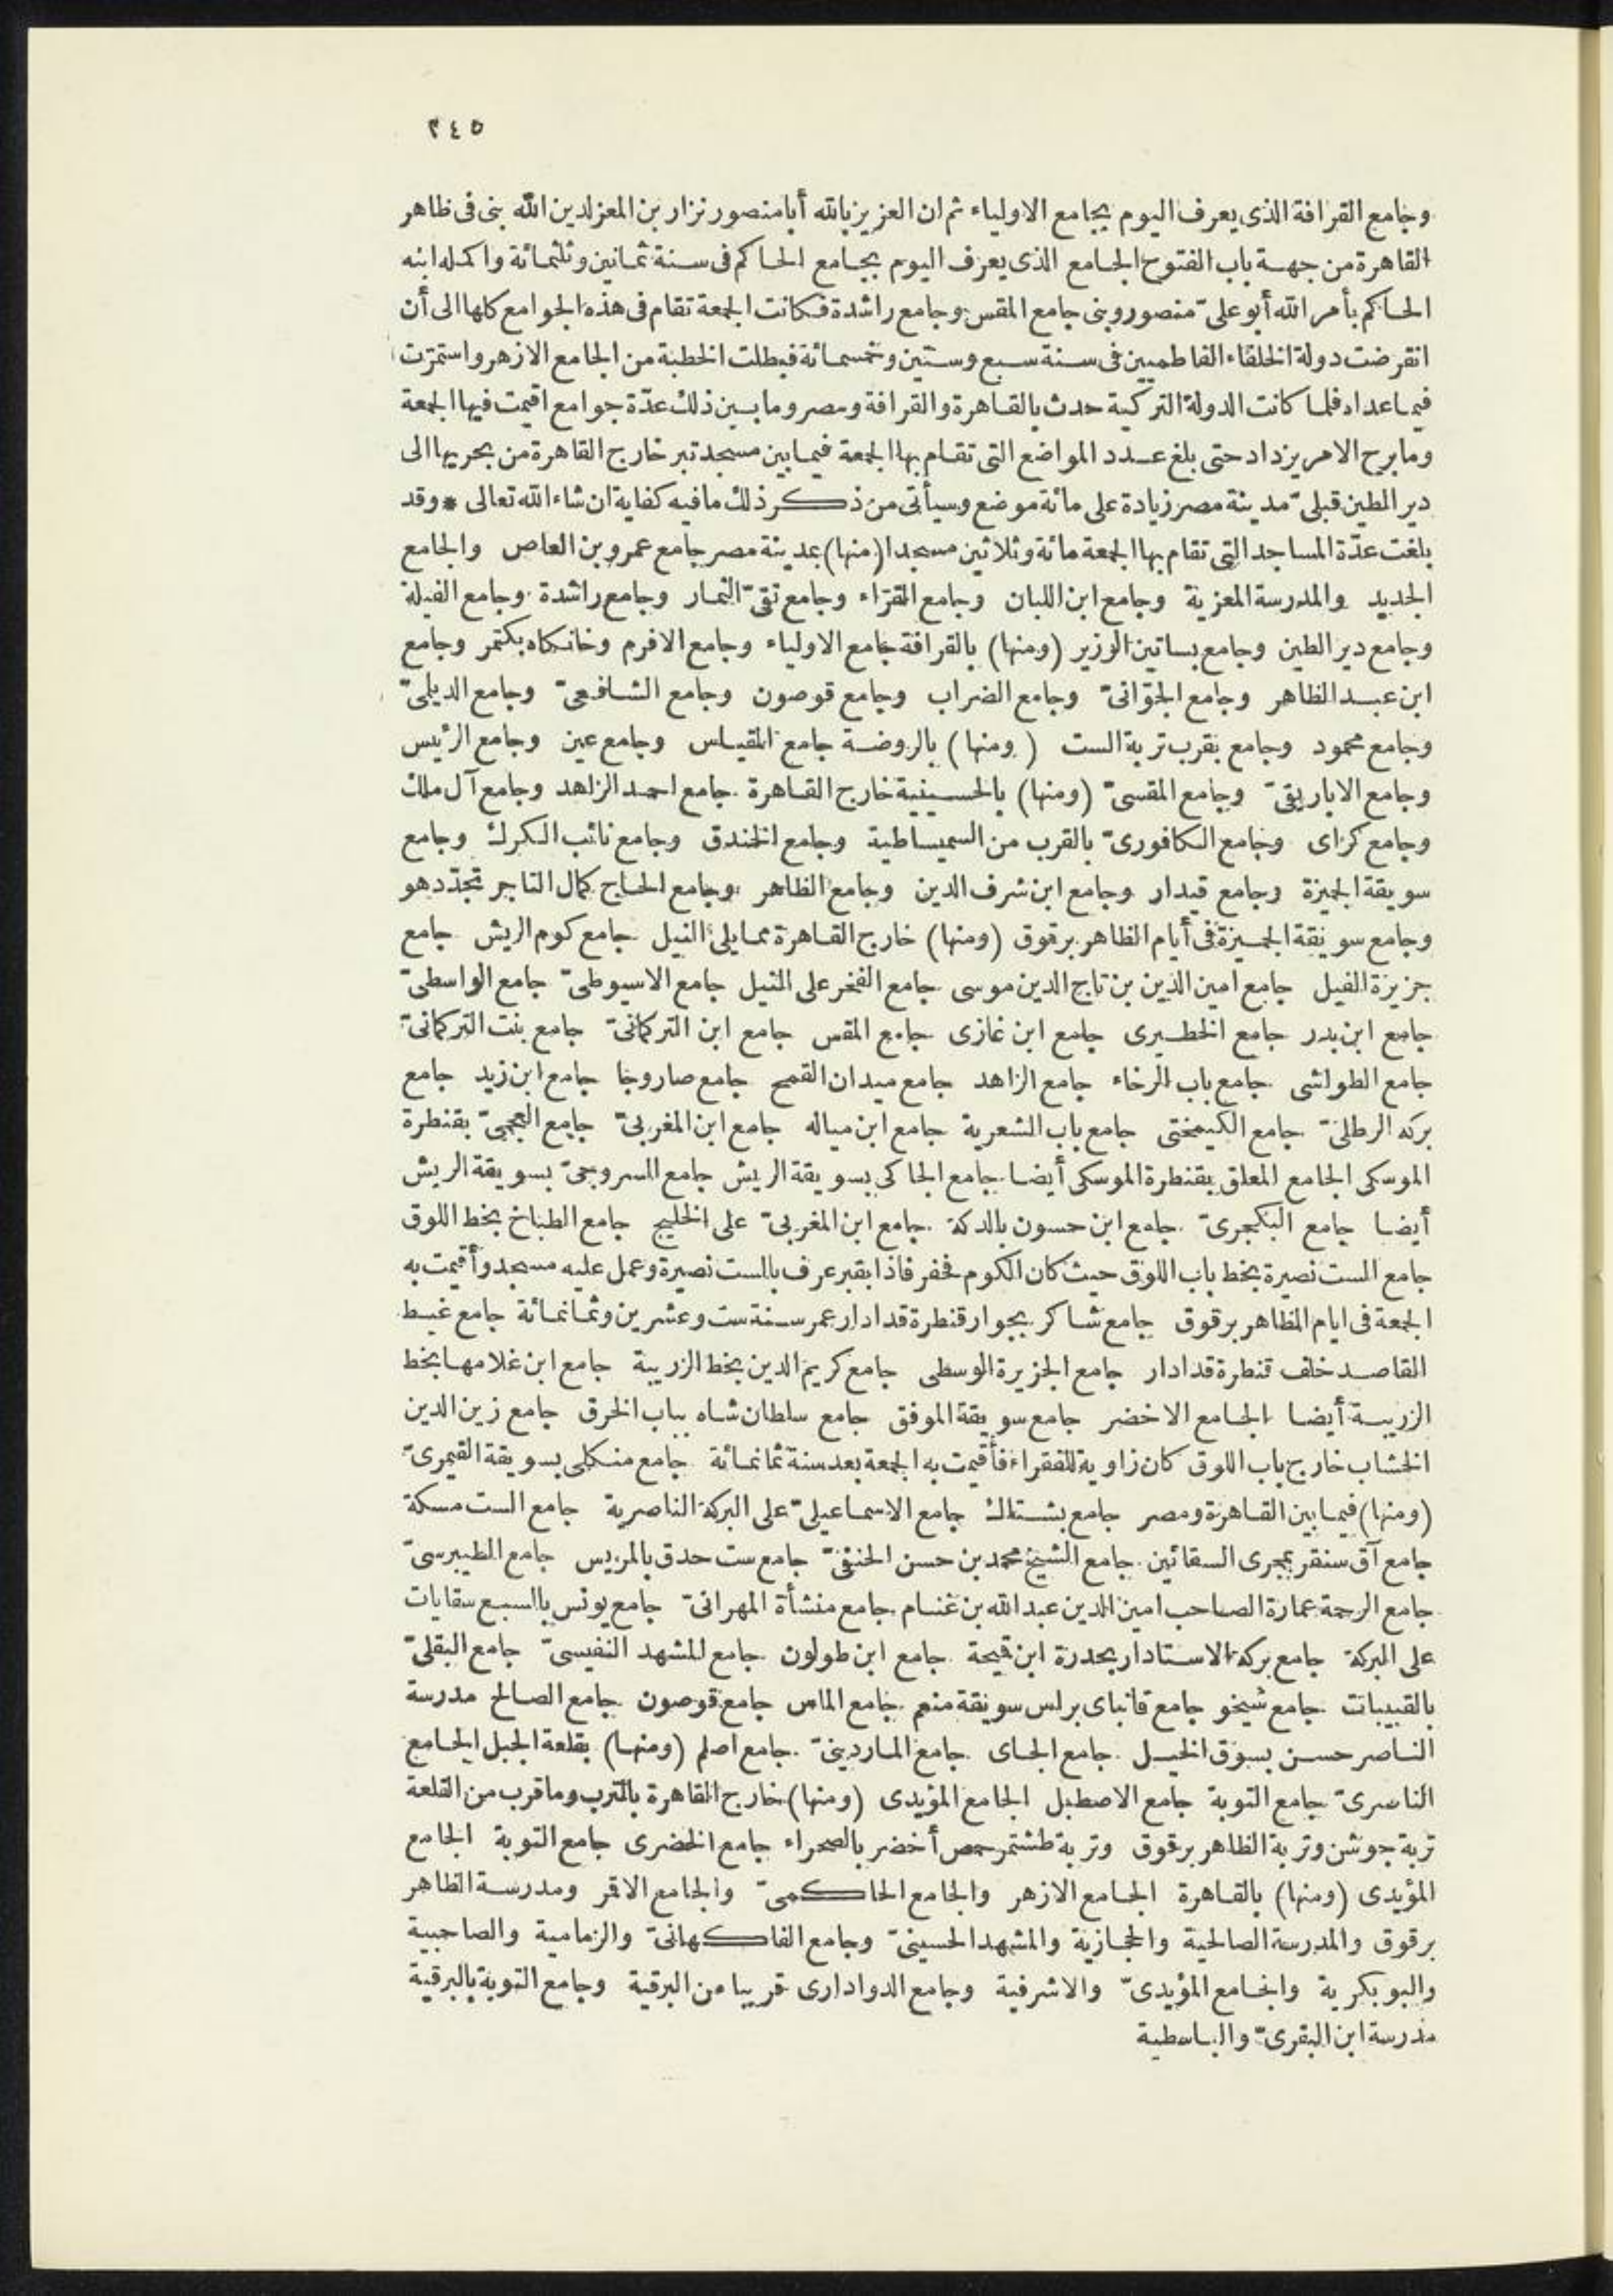 ٢٤٥
وجامع القرافة الذى يعرف اليوم بجامع الاولياء ثم ان العزيز بالله أبا منصور نزار بن المعز لدين الله بنى فى ظاهر
القاهرة من جهة باب الفتوح الجامع الذى يعرف اليوم بجامع الحاكم فى سنة ثمانين وثلثمائة واكمله ابنه
الحاكم بأمر الله أبو علىّ منصور وبنى جامع المقس وجامع راشدة فكانت الجمعة تقام فى هذه الجوامع كلها الى أن
انقرضت دولة الخلفاء الفاطميين فى سنة سبع وستين وخمسمائة فبطلت الخطبة من الجامع الازهر واستمرّت
فيما عداه فلما كانت الدولة التركية حدث بالقاهرة والقرافة ومصر وما بين ذلك عدّة جوامع اقيمت فيها الجمعة
وما برح الامر يزداد حتى بلغ عدد المواضع التى تقام بها الجمعة فيما بين مسجد تبر خارج القاهرة من بحريها الى
دير الطين قبلىّ مدينة مصر زيادة على مائة موضع وسيأتى من ذكر ذلك ما فيه كفاية ان شاء الله تعالى * وقد
بلغت عدّة المساجد التى تقام بها الجمعة مائة وثلاثين مسجدا (منها) بمدينة مصر جامع عمرو بن العاص والجامع
الجديد والمدرسة المعزية وجامع ابن اللبان وجامع القرّاء وجامع تقىّ التمار وجامع راشدة وجامع الفيلة
وجامع دير الطين وجامع بساتين الوزير (ومنها) بالقرافة جامع الاولياء وجامع الافرم وخانكاه بكتمر وجامع
ابن عبد الظاهر وجامع الجوّانىّ وجامع الضراب وجامع قوصون وجامع الشافعىّ وجامع الديلمىّ
وجامع محمود وجامع بقرب تربة الست (ومنها) بالروضة جامع المقياس وجامع عين وجامع الرئيس
وجامع الاباريقىّ وجامع المقسىّ (ومنها) بالحسينية خارج القاهرة جامع احمد الزاهد وجامع آل ملك
وجامع كراى وجامع الكافورىّ بالقرب من السميساطية وجامع الخندق وجامع نائب الكرك وجامع
سويقة الجميزة وجامع قيدار وجامع ابن شرف الدين وجامع الظاهر وجامع الحاج كمال التاجر تجدّد هو
وجامع سويقة الجميزة فى أيام الظاهر برقوق (ومنها) خارج القاهرة مما يلى النيل جامع كوم الريش جامع
جزيرة الفيل جامع امين الدين بن تاج الدين موسى جامع الفخر على النيل جامع الاسيوطىّ جامع الواسطىّ
جامع ابن بدر جامع الخطيرى جامع ابن غازى جامع المقس جامع ابن التركمانىّ جامع بنت التركمانىّ
جامع الطواشى جامع باب الرخاء جامع الزاهد جامع ميدان القمح جامع صاروجا جامع ابن زيد جامع
بركه الرطلىّ جامع الكيمختى جامع باب الشعرية جامع ابن مياله جامع ابن المغربىّ جامع العجمىّ بقنطرة
الموسكى الجامع المعلق بقنطرة الموسكى أيضا جامع الجاكى بسويقة الريش جامع السروجىّ بسويقة الريش
أيضا جامع البكجرىّ جامع ابن حسون بالدكة جامع ابن المغربىّ على الخليج جامع الطباخ بخط اللوق
جامع الست نصيرة بخط باب اللوق حيث كان الكوم فحفر فاذا بقبر عرف بالست نصيرة وعمل عليه مسجد وأقيمت به
الجمعة فى ايام الظاهر برقوق جامع شاكر بجوار قنطرة قدادار عمر سنة ست وعشرين وثمانمائة جامع غيط
القاصد خلف قنطرة قدادار جامع الجزيرة الوسطى جامع كريم الدين بخط الزريبة جامع ابن غلامها بخط
الزريبة أيضا الجامع الاخضر جامع سويقة الموفق جامع سلطان شاه بباب الخرق جامع زين الدين
الخشاب خارج باب اللوق كان زاوية للفقراء فأقيمت به الجمعة بعد سنة ثمانمائة جامع منكلى بسويقة القيمرىّ
(ومنها) فيما بين القاهرة ومصر جامع بشتاك جامع الاسماعيلىّ على البركة الناصرية جامع الست مسكة
جامع آق سنقر بمجرى السقائين جامع الشيخ محمد بن حسن الحنفىّ جامع ست حدق بالمريس جامع الطيبرسىّ
جامع الرحمة عمارة الصاحب امين الدين عبد الله بن غنام جامع منشأة المهرانىّ جامع يونس بالسبع سقايات
على البركة جامع بركه الاستادار بحدرة ابن قميحة جامع ابن طولون جامع المشهد النفيسىّ جامع البقلىّ
بالقبيبات جامع شيخو جامع قانباى براس سويقة منعم جامع الماس جامع قوصون جامع الصالح مدرسة
الناصر حسن بسوق الخيل جامع الجاى جامع الماردينىّ جامع اصلم (ومنها) بقلعة الجبل الجامع
الناصرىّ جامع التوبة جامع الاصطبل الجامع المؤيدى (ومنها) خارج القاهرة بالترب وما قرب من القلعة
تربة جوشن وتربة الظاهر برقوق وتربة طشتمر حمص أخضر بالصحراء جامع الخضرى جامع التوبة الجامع
المؤيدى (ومنها) بالقاهرة الجامع الازهر والجامع الحاكمىّ والجامع الاقمر ومدرسة الظاهر
برقوق والمدرسة الصالحية والحجازية والمشهد الحسينىّ وجامع الفاكهانىّ والزمامية والصاحبية
والبوبكرية والجامع المؤيدىّ والاشرفية وجامع الدوادارى قريبا من البرقية وجامع التوبة بالبرقية
مدرسة ابن البقرىّ والباسطية